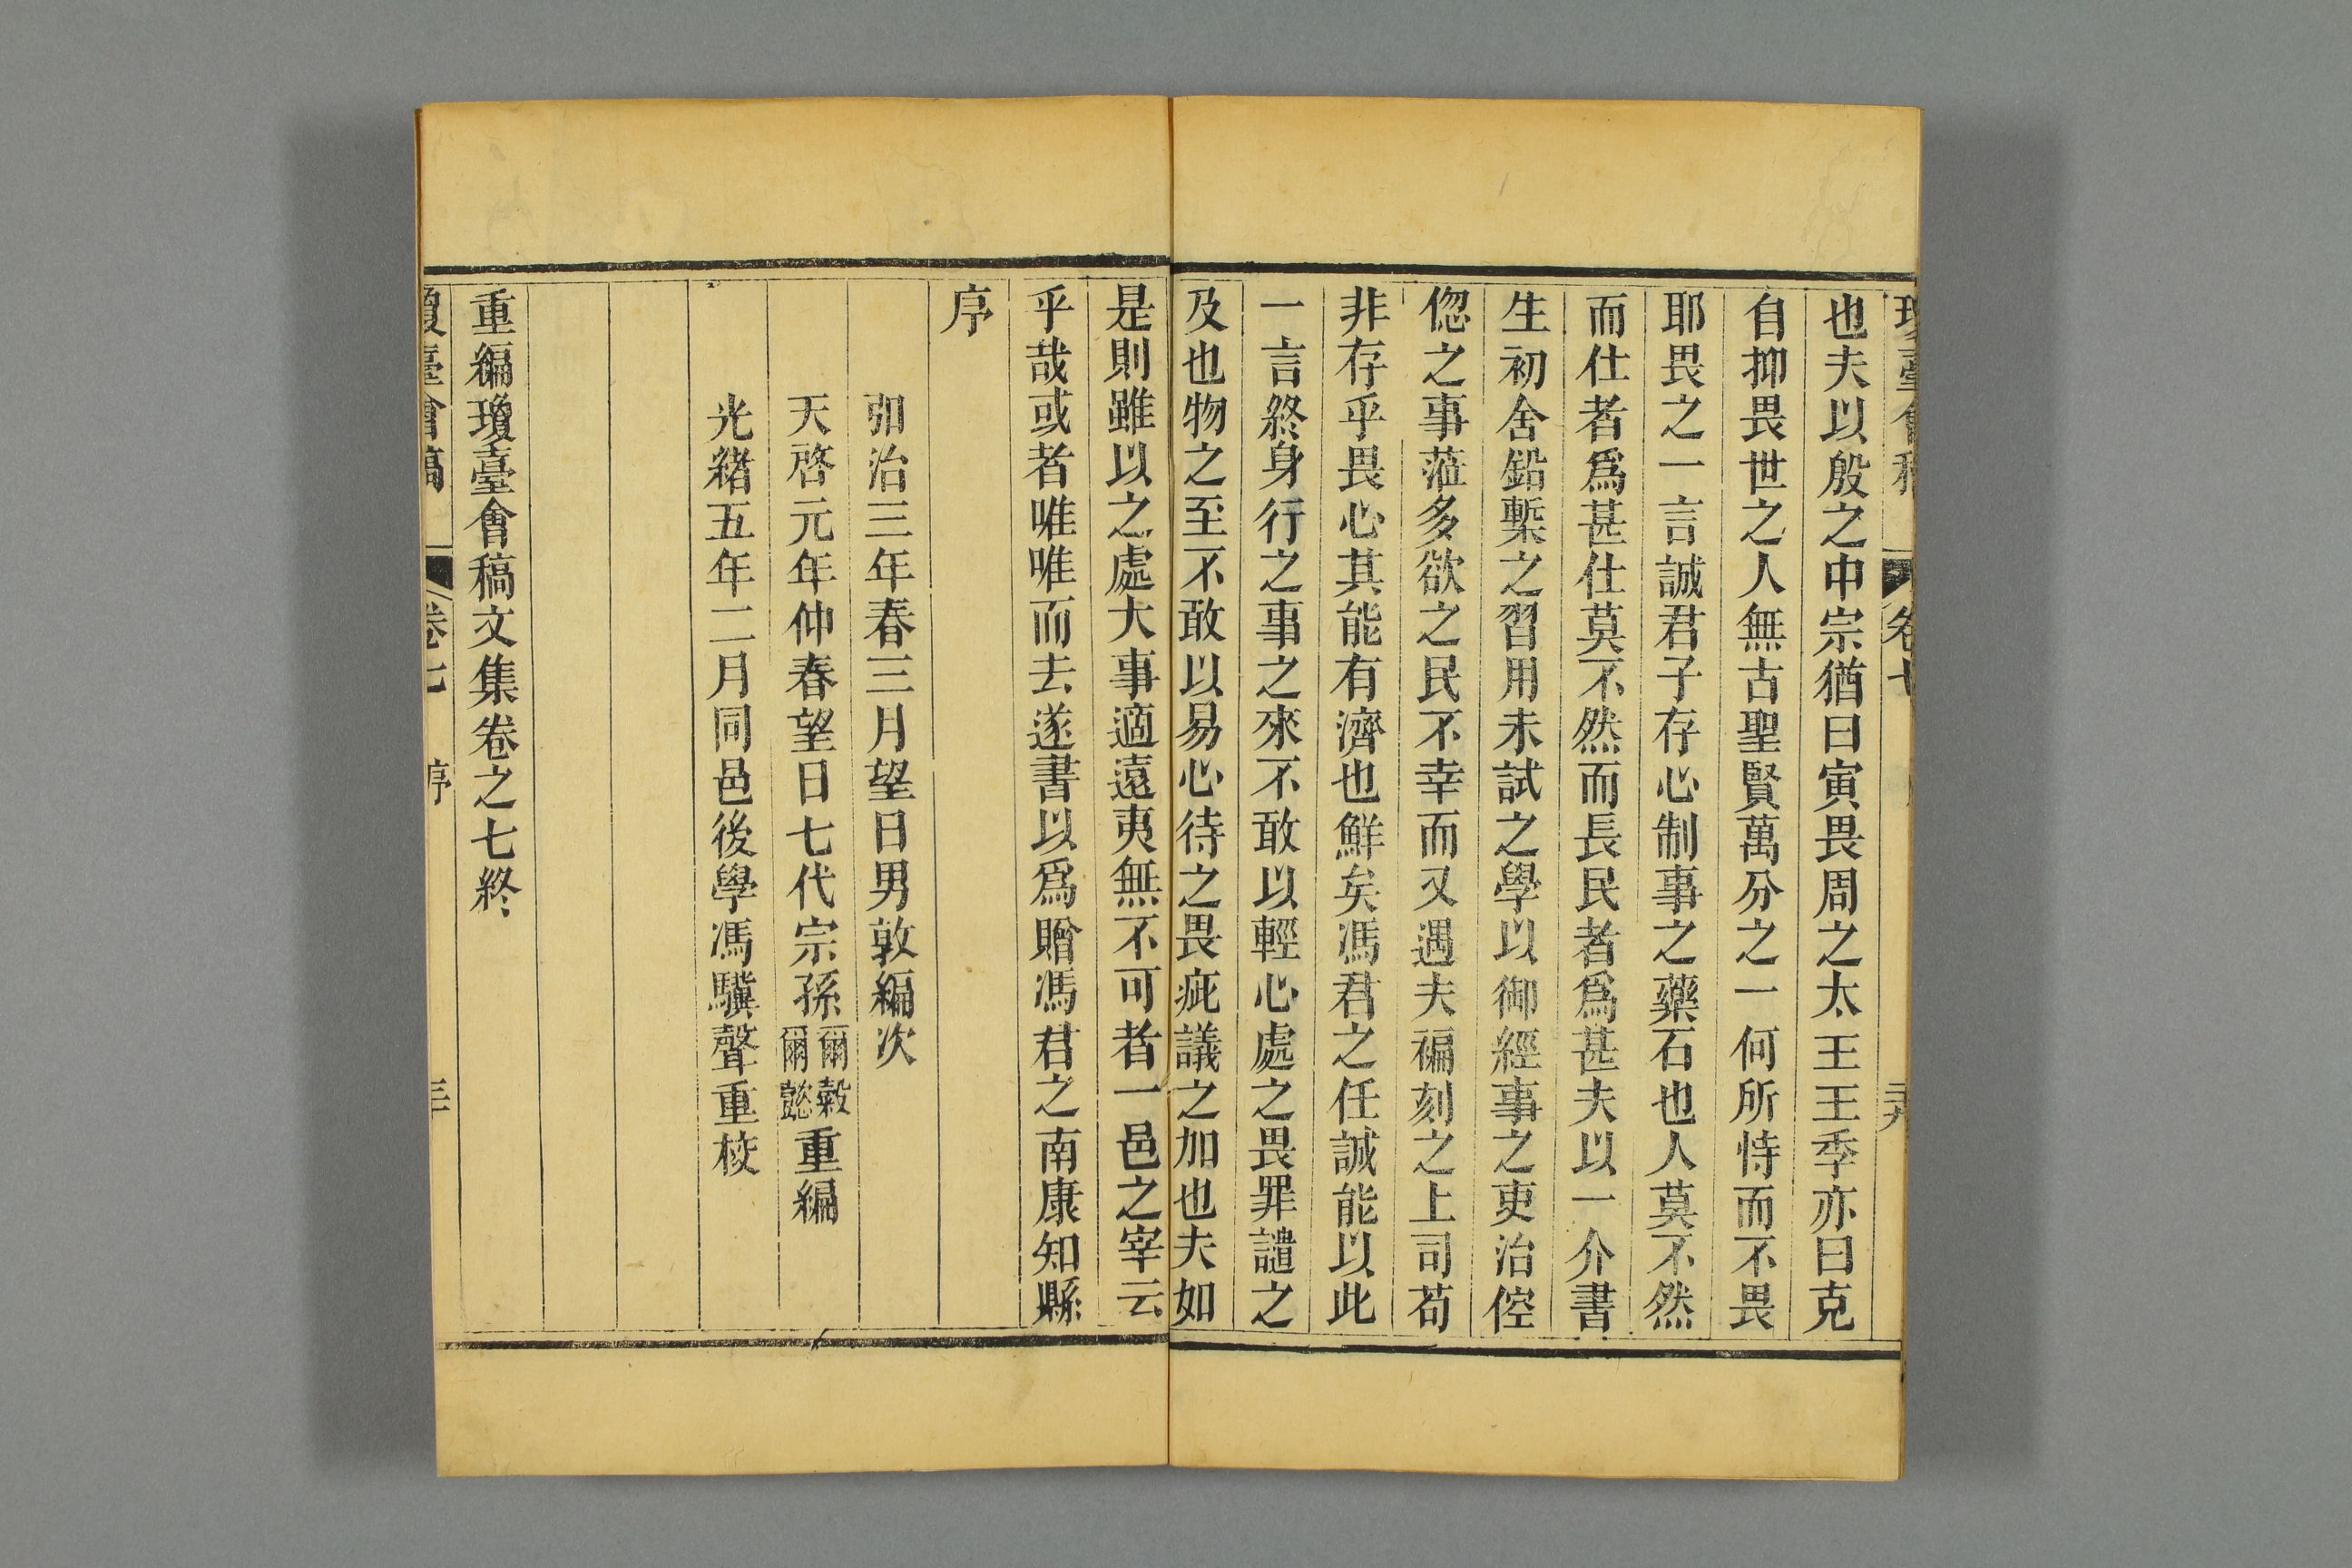 也夫以殷之中宗猶曰寅畏周之太王王季亦曰克
自抑畏世之人無古聖賢萬分之一何所恃而不畏
耶畏之一言誠君子存心制事之藥石也人莫不然
而仕者爲甚仕莫不然而長民者爲甚夫以一介書
生初舍鉛槧之習用未試之學以御經事之吏治倥
偬之事蒞多欲之民不幸而又遇夫褊刻之上司苟
非存乎畏心其能有濟也鮮矣馮君之任誠能以此
一言終身行之事之來不敢以輕心處之畏罪譴之
及也物之至不敢以易心待之畏疵議之加也夫如
是則雖以之處大事適遠夷無不可者一邑之宰云
乎哉或者唯唯而去遂書以爲贈馮君之南康知縣
序
弘治三年春三月望日男敦編次
天啓元年仲春望日七代宗孫爾穀爾懿重編
光緒五年二月同邑後學馮驥聲重校
重編瓊臺會稿文集卷之七終
瓊臺會稿 卷七 序